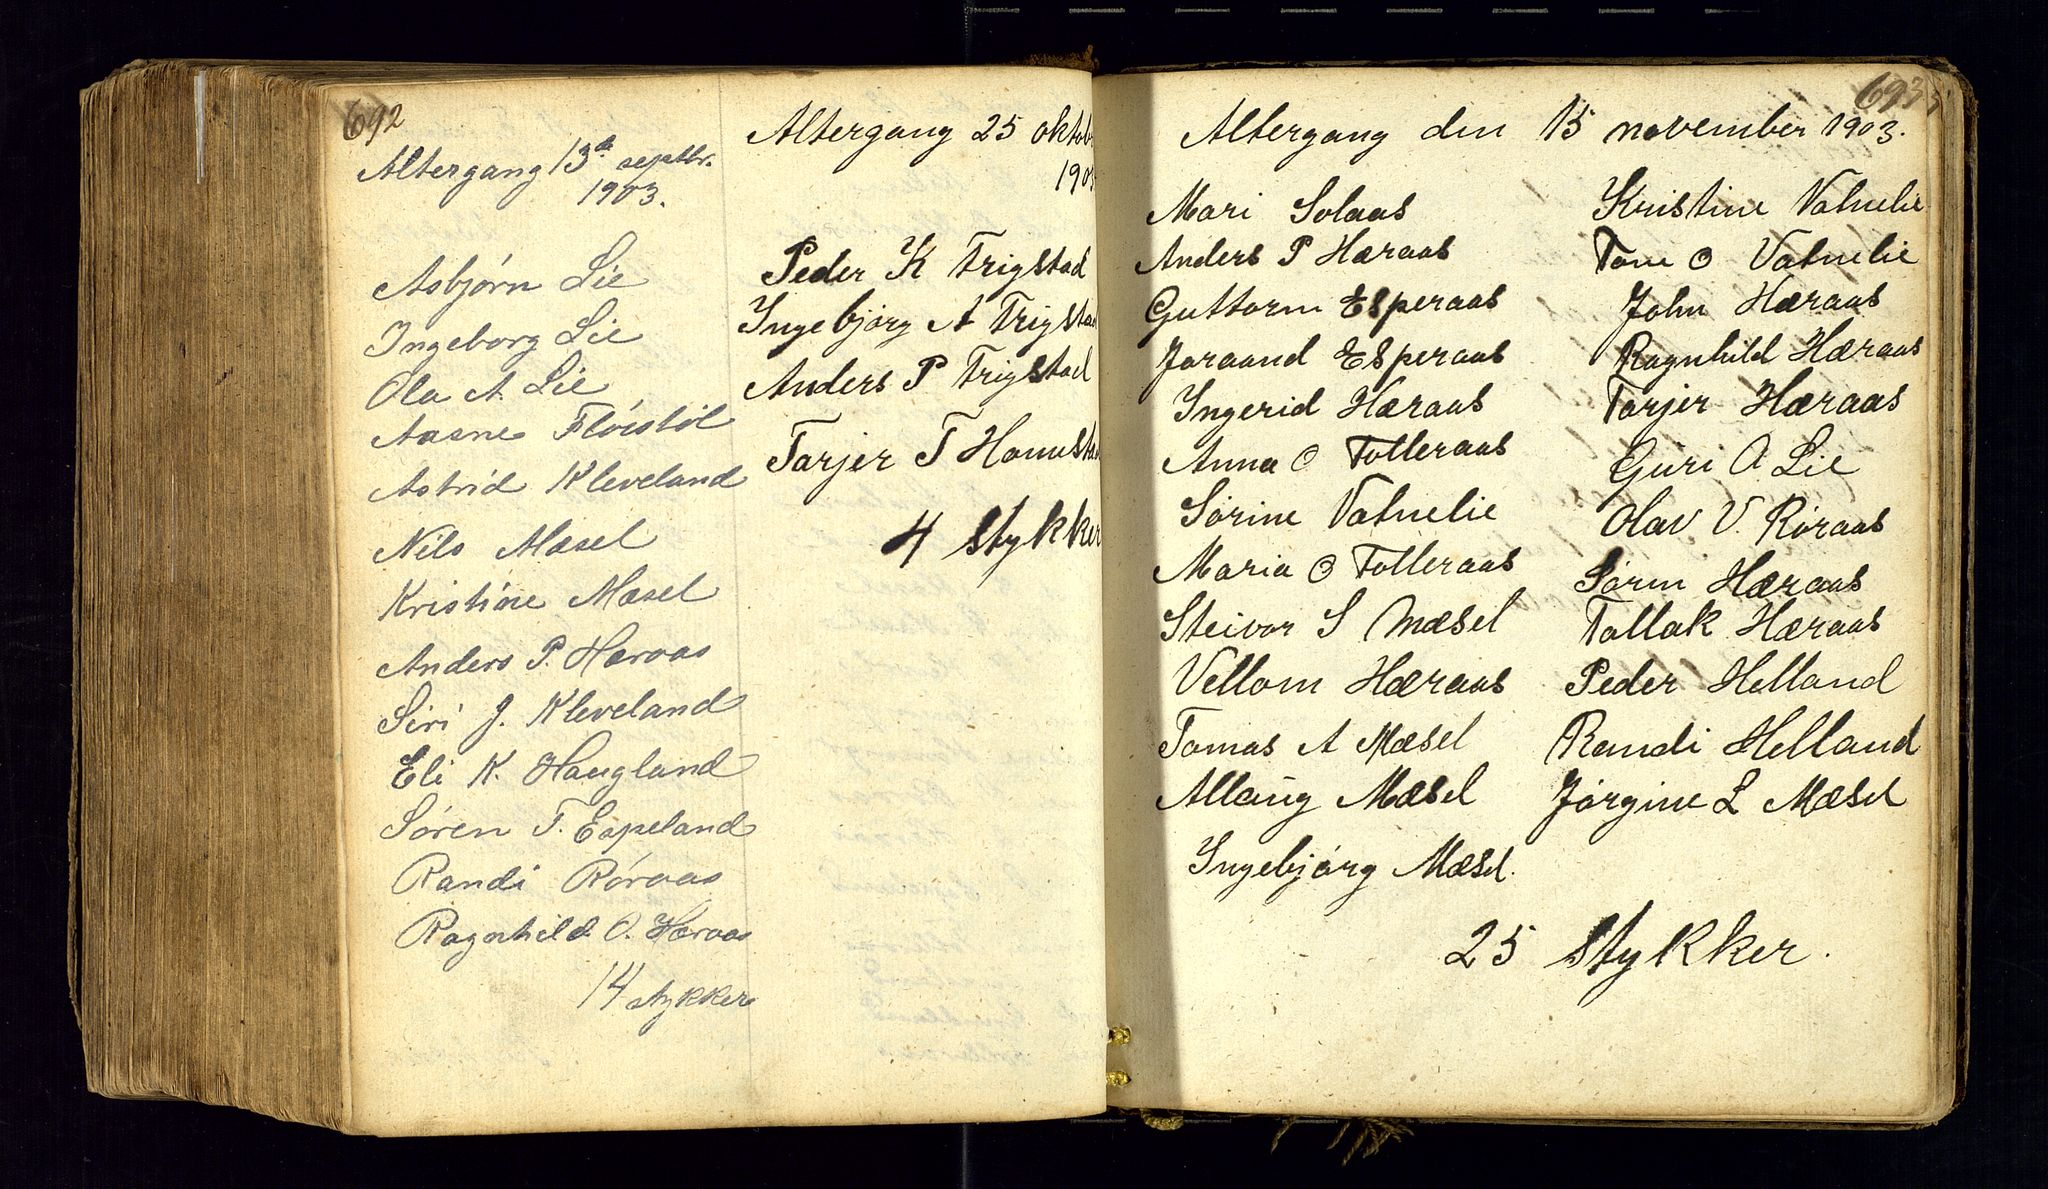 692
Altergang 13de septbr.
1903.
Asbjørn Lie
Ingeborg Lie
Ola A. Lie
Aasne Fløistøl
Astrid Kleveland
Nils Mæsel
Kristine Mæsel
Anders P. Hæraas
Siri J. Kleveland
Eli K. Haugland
Søren T. Espeland
Randi Røraas
Ragnhild O. Hæraas
14 stykker
Altergang 25 oktob
190
Peder K Trigstad
Ingebjørg A Trigsta
Anders P Trigstad
Tarjer T Homst
4 stykker
693
Altergang den 15 november 1903.
Mari Solaas
Anders P Hæraas
Guttorm Esperaas
Joraand Esperaas
Ingerid Hæraas
Anna O Tolleraas
Sørine Vatnelie
Maria O Tolleraas
Steivor S Mæsel
Vellom Hæraas
Tomas A Mæsel
Allaug Mæsel
Ingebjørg Mæsel.
Kristine Vatnelie
Tone O Vatnelie
John Hæraas
Ragnhild Hæraas
Tarjer Hæraas
Guri O Lie
Olav V. Røraas
Sørin Hæraas
Tallak Hæraas
Peder Helland
Randi Helland
Jørgine L Mæsel
25 stykker.